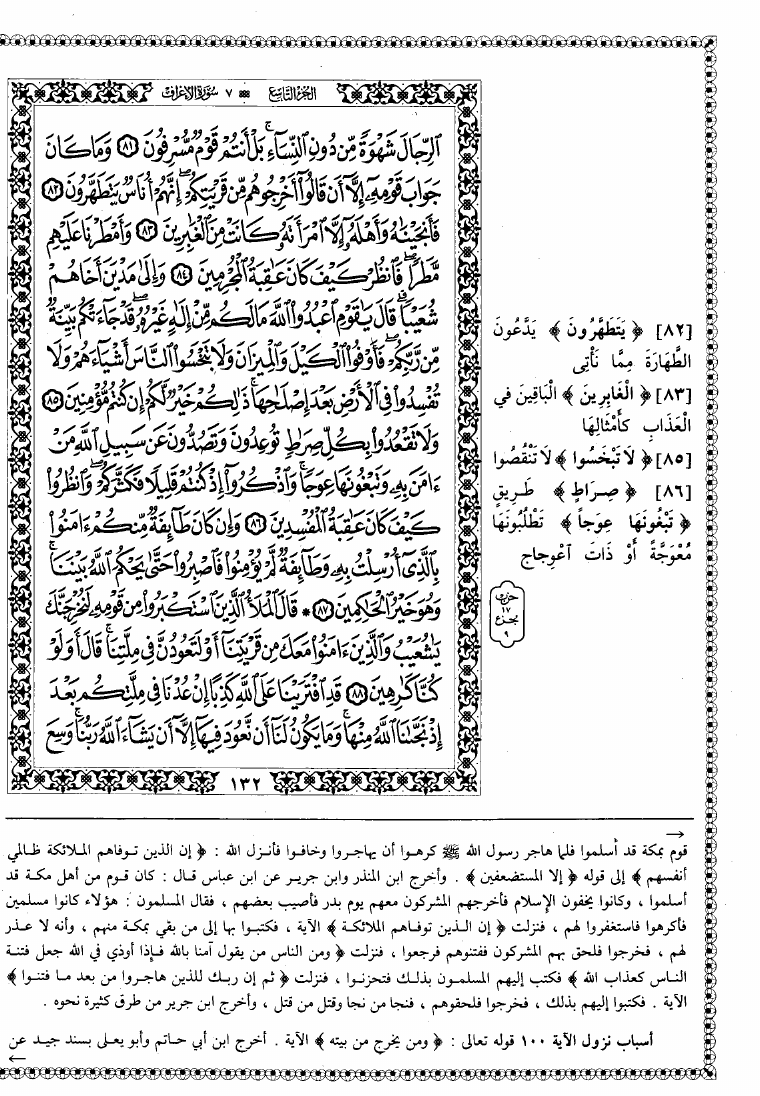 الجزء التاسع ٧ سورة الأعراف
ٱلرِّجَالَ شَهْوَةً مِّن دُونِ ٱلنِّسَآءِ ۚ بَلْ أَنتُمْ قَوْمٌ مُّسْرِفُونَ ٨١ وَمَا كَانَ
جَوَابَ قَوْمِهِۦٓ إِلَّآ أَن قَالُوٓا۟ أَخْرِجُوهُم مِّن قَرْيَتِكُمْ ۖ إِنَّهُمْ أُنَاسٌ يَتَطَهَّرُونَ ٨٢
فَأَنجَيْنَٰهُ وَأَهْلَهُۥٓ إِلَّا ٱمْرَأَتَهُۥ كَانَتْ مِنَ ٱلْغَٰبِرِينَ ٨٣ وَأَمْطَرْنَا عَلَيْهِم
مَّطَرًا ۖ فَٱنظُرْ كَيْفَ كَانَ عَٰقِبَةُ ٱلْمُجْرِمِينَ ٨٤ وَإِلَىٰ مَدْيَنَ أَخَاهُمْ
شُعَيْبًا ۗ قَالَ يَٰقَوْمِ ٱعْبُدُوا۟ ٱللَّهَ مَا لَكُم مِّنْ إِلَٰهٍ غَيْرُهُۥ ۖ قَدْ جَآءَتْكُم بَيِّنَةٌ
مِّن رَّبِّكُمْ ۖ فَأَوْفُوا۟ ٱلْكَيْلَ وَٱلْمِيزَانَ وَلَا تَبْخَسُوا۟ ٱلنَّاسَ أَشْيَآءَهُمْ وَلَا
تُفْسِدُوا۟ فِى ٱلْأَرْضِ بَعْدَ إِصْلَٰحِهَا ۚ ذَٰلِكُمْ خَيْرٌ لَّكُمْ إِن كُنتُم مُّؤْمِنِينَ ٨٥
وَلَا تَقْعُدُوا۟ بِكُلِّ صِرَٰطٍ تُوعِدُونَ وَتَصُدُّونَ عَن سَبِيلِ ٱللَّهِ مَنْ
ءَامَنَ بِهِۦ وَتَبْغُونَهَا عِوَجًا ۚ وَٱذْكُرُوٓا۟ إِذْ كُنتُمْ قَلِيلًا فَكَثَّرَكُمْ ۖ وَٱنظُرُوا۟
كَيْفَ كَانَ عَٰقِبَةُ ٱلْمُفْسِدِينَ ٨٦ وَإِن كَانَ طَآئِفَةٌ مِّنكُمْ ءَامَنُوا۟
بِٱلَّذِىٓ أُرْسِلْتُ بِهِۦ وَطَآئِفَةٌ لَّمْ يُؤْمِنُوا۟ فَٱصْبِرُوا۟ حَتَّىٰ يَحْكُمَ ٱللَّهُ بَيْنَنَا ۚ
وَهُوَ خَيْرُ ٱلْحَٰكِمِينَ ٨٧ * قَالَ ٱلْمَلَأُ ٱلَّذِينَ ٱسْتَكْبَرُوا۟ مِن قَوْمِهِۦ لَنُخْرِجَنَّكَ
يَٰشُعَيْبُ وَٱلَّذِينَ ءَامَنُوا۟ مَعَكَ مِن قَرْيَتِنَآ أَوْ لَتَعُودُنَّ فِى مِلَّتِنَا ۚ قَالَ أَوَلَوْ
كُنَّا كَٰرِهِينَ ٨٨ قَدِ ٱفْتَرَيْنَا عَلَى ٱللَّهِ كَذِبًا إِنْ عُدْنَا فِى مِلَّتِكُم بَعْدَ
إِذْ نَجَّىٰنَا ٱللَّهُ مِنْهَا ۚ وَمَا يَكُونُ لَنَآ أَن نَّعُودَ فِيهَآ إِلَّآ أَن يَشَآءَ ٱللَّهُ رَبُّنَا ۚ وَسِعَ
١٣٢
[٨٢] ﴿ يَتَطَهَّرُونَ ﴾ يَدَّعُونَ
الطَّهَارَةَ مِمَّا نَأْتِى
[٨٣] ﴿ الْغَابِرِينَ ﴾ الْبَاقِينَ في
الْعَذَابِ كَأَمْثَالِهَا
[٨٥] ﴿ لَا تَبْخَسُوا ﴾ لَا تَنْقُصُوا
[٨٦] ﴿ صِرَاطٍ ﴾ طَرِيقٍ
﴿ تَبْغُونَهَا عِوَجاً ﴾ تَطْلُبُونَهَا
مُعْوَجَّةً أَوْ ذَاتَ اعْوِجاج
حزب
١٧
جزء
٩
→
قوم بمكة قد أسلموا فلما هاجر رسول الله ﷺ كرهوا أن يهاجروا وخافوا فأنزل الله : ﴿ إن الذين توفاهم الملائكة ظالمي
أنفسهم ﴾ إلى قوله ﴿ إلا المستضعفين ﴾ . وأخرج ابن المنذر وابن جرير عن ابن عباس قال : كان قوم من أهل مكة قد
أسلموا ، وكانوا يخفون الإسلام فأخرجهم المشركون معهم يوم بدر فأصيب بعضهم ، فقال المسلمون : هؤلاء كانوا مسلمين
فأكرهوا فاستغفروا لهم ، فنزلت ﴿ إن الذين توفاهم الملائكة ﴾ الآية ، فكتبوا بها إلى من بقي بمكة منهم ، وأنه لا عذر
لهم ، فخرجوا فلحق بهم المشركون ففتنوهم فرجعوا ، فنزلت ﴿ ومن الناس من يقول آمنا بالله فإذا أوذي في الله جعل فتنة
الناس كعذاب الله ﴾ فكتب إليهم المسلمون بذلك فتحزنوا ، فنزلت ﴿ ثم إن ربك للذين هاجروا من بعد ما فتنوا ﴾
الآية . فكتبوا إليهم بذلك ، فخرجوا فلحقوهم ، فنجا من نجا وقتل من قتل ، وأخرج ابن جرير من طرق كثيرة نحوه .
أسباب نزول الآية ١٠٠ قوله تعالى : ﴿ ومن يخرج من بيته ﴾ الآية . أخرج ابن أبي حاتم وأبو يعلى بسند جيد عن
←